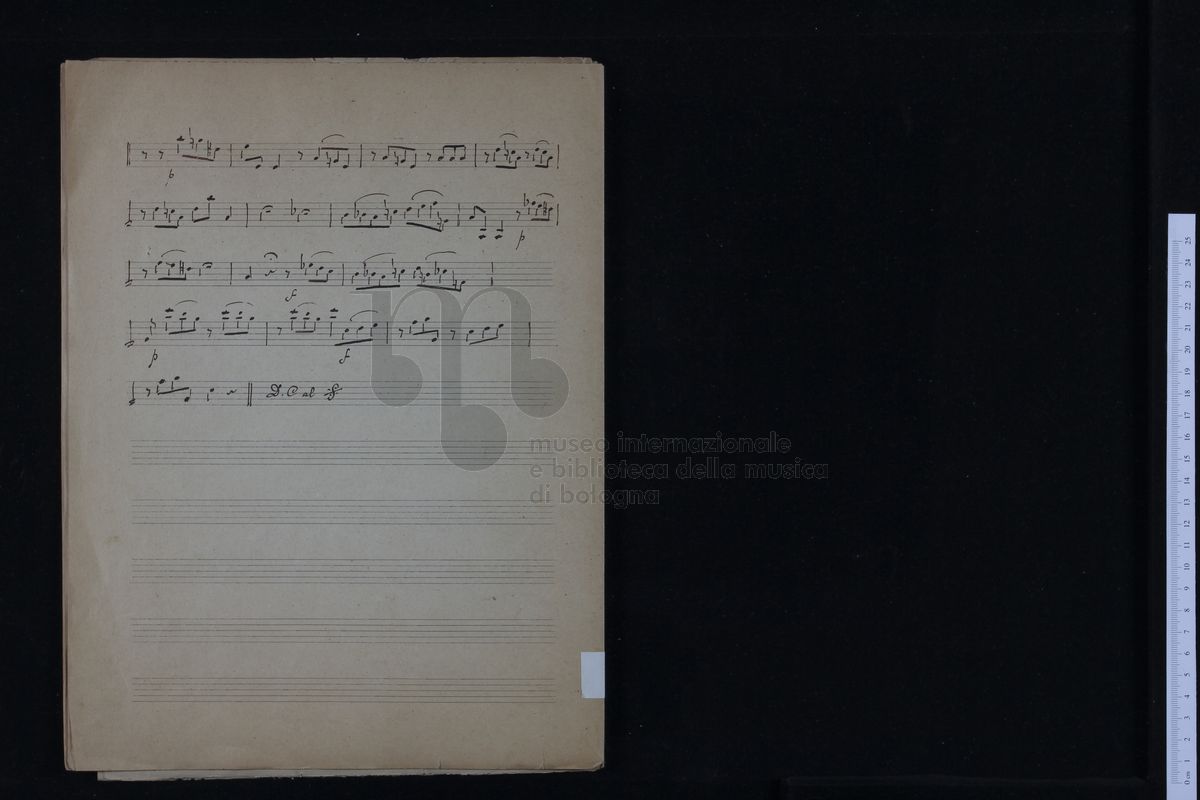 p
p
f
p
f
D.C al 𝄋
museo internazionale
e biblioteca della musica
di bologna
0 cm 1 2 3 4 5 6 7 8 9 10 11 12 13 14 15 16 17 18 19 20 21 22 23 24 25